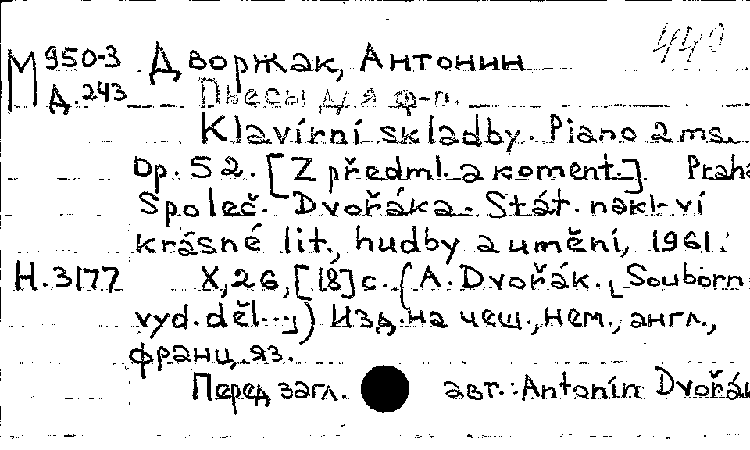 М 950-3 Дворжак, Антонин 440
Д. 243 Пьесы для ф-п.
Klavírní skladby. Piano 2 ms.
Op. 52. [Z předml. a koment.] Praha
Společ. Dvořáka. Stát. nakl-ví
krásné lit., hudby a umění, 1961.
Н. 3177 X, 26, [18] с. (A. Dvořák. Souborn
vyd. děl...;) Изд. на чеш., нем., англ.,
франц. яз.
Перед загл. авт.: Antonín Dvořák